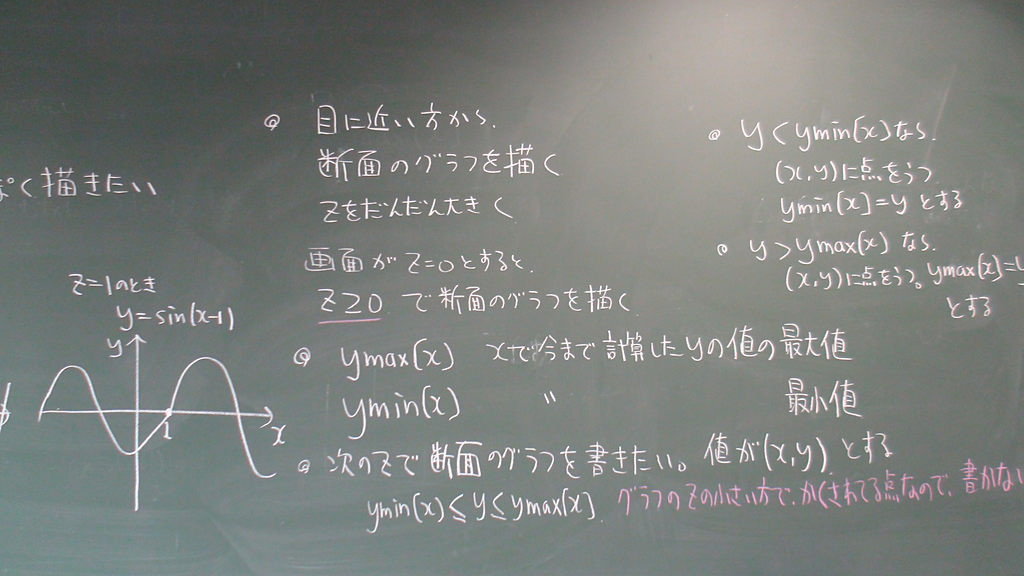 ぽく描きたい
z=1のとき
y=sin(x-1)
y
1
x
◎ 目に近い方から、
断面のグラフを描く
zをだんだん大きく
画面がz=0とすると、
z≧0 で断面のグラフを描く
◎ ymax(x) xで今まで計算したyの値の最大値
ymin(x) 〃 最小値
◎ 次のzで断面のグラフを書きたい。値が(x,y)とする
ymin(x)≦y≦ymax(x) グラフのzの小さい方で、かくされてる点なので、書かない
◎ y<ymin(x)なら、
(x,y)に点をうつ
ymin(x)=y とする
◎ y>ymax(x) なら、
(x,y)に点をうつ。ymax(x)=
とする